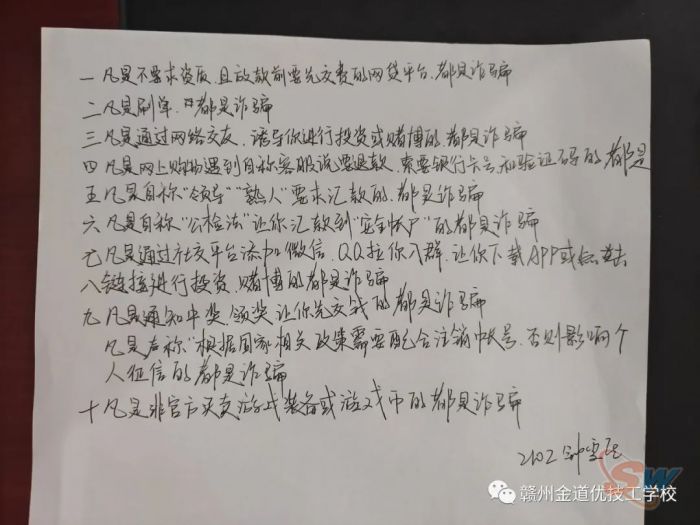 一 凡是不要求资质、且放款前要先交费的网贷平台、都是诈骗
二 凡是刷单、都是诈骗
三 凡是通过网络交友、诱导你进行投资或赌博的、都是诈骗
四 凡是网上购物遇到自称客服说要退款、索要银行卡号和验证码的都是
五 凡是自称“领导”“熟人”要求汇款的、都是诈骗
六 凡是自称“公检法”让你汇款到“安全帐户”的都是诈骗
七 凡是通过社交平台添加微信、QQ拉你入群、让你下载APP或点击
八 链接进行投资、赌博的都是诈骗
九 凡是通知中奖、领奖让你先交钱的都是诈骗
凡是声称“根据国家相关政策需要配合注销帐号、否则影响个
人征信的都是诈骗
十 凡是非官方买卖游戏装备或游戏币的都是诈骗
2102 钟
SW
赣州金道优技工学校